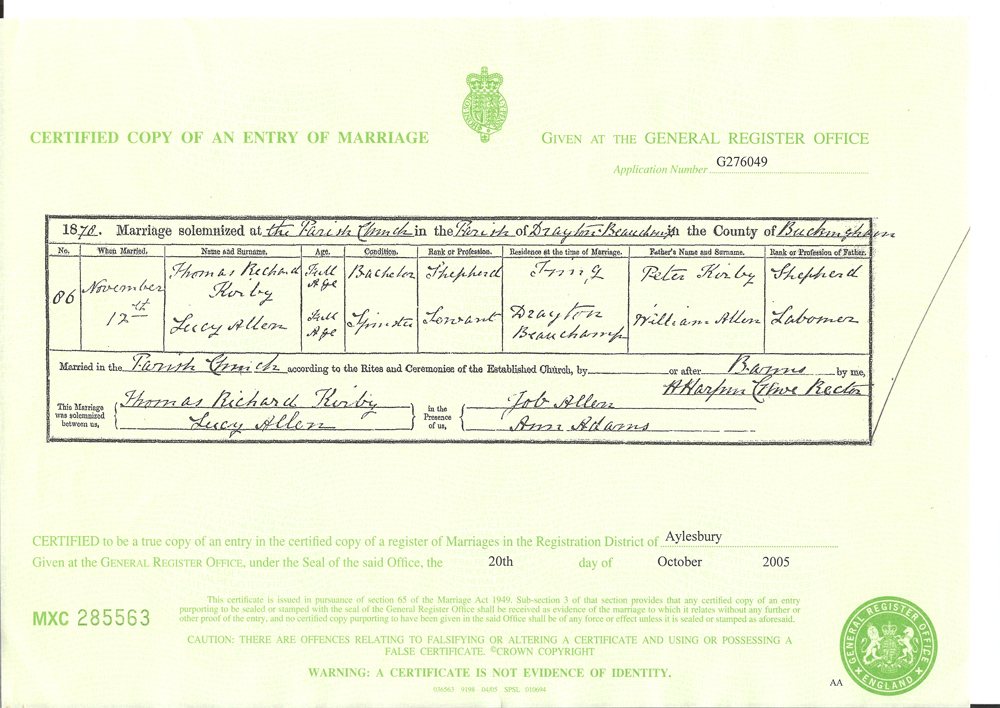 CERTIFIED COPY OF AN ENTRY OF MARRIAGE
GIVEN AT THE GENERAL REGISTER OFFICE
Application Number G276049
1870. Marriage solemnized at the Parish Church in the Parish of Drayton Beauchamp in the County of Buckingham
No. When Married. Name and Surname. Age. Condition. Rank or Profession. Residence at the time of Marriage. Father's Name and Surname. Rank or Profession of Father.
86 November 12th
Thomas Richard Kirby Full Age Bachelor Shepherd Tring Peter Kirby Shepherd
Lucy Allen Full Age Spinster Servant Drayton Beauchamp William Allen Labourer
Married in the Parish Church according to the Rites and Ceremonies of the Established Church, by or after Banns by me,
H Harpur Crewe Rector
This Marriage was solemnized between us, Thomas Richard Kirby
Lucy Allen
in the Presence of us, Job Allen
Ann Adams
CERTIFIED to be a true copy of an entry in the certified copy of a register of Marriages in the Registration District of Aylesbury
Given at the GENERAL REGISTER OFFICE, under the Seal of the said Office, the 20th day of October 2005
MXC 285563
This certificate is issued in pursuance of section 65 of the Marriage Act 1949. Sub-section 3 of that section provides that any certified copy of an entry
purporting to be sealed or stamped with the seal of the General Register Office shall be received as evidence of the marriage to which it relates without any further or
other proof of the entry, and no certified copy purporting to have been given in the said Office shall be of any force or effect unless it is sealed or stamped as aforesaid.
CAUTION: THERE ARE OFFENCES RELATING TO FALSIFYING OR ALTERING A CERTIFICATE AND USING OR POSSESSING A
FALSE CERTIFICATE. ©CROWN COPYRIGHT
WARNING: A CERTIFICATE IS NOT EVIDENCE OF IDENTITY.
036563 9198 04/05 SPSL 010694
AA
GENERAL REGISTER OFFICE
ENGLAND